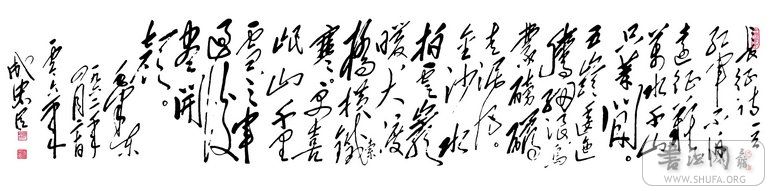 长征诗一首
红军不怕
远征难
万水千山
只等闲。
五岭逶迤
腾细浪乌
蒙磅礴
走泥丸。
金沙水
拍云崖
暖,大渡
桥横铁索
寒。更喜
岷山千里
雪,三军
过后
尽开
颜。
毛泽东
一九六二年
四月二十日
书法网
WWW.SHUFA.ORG